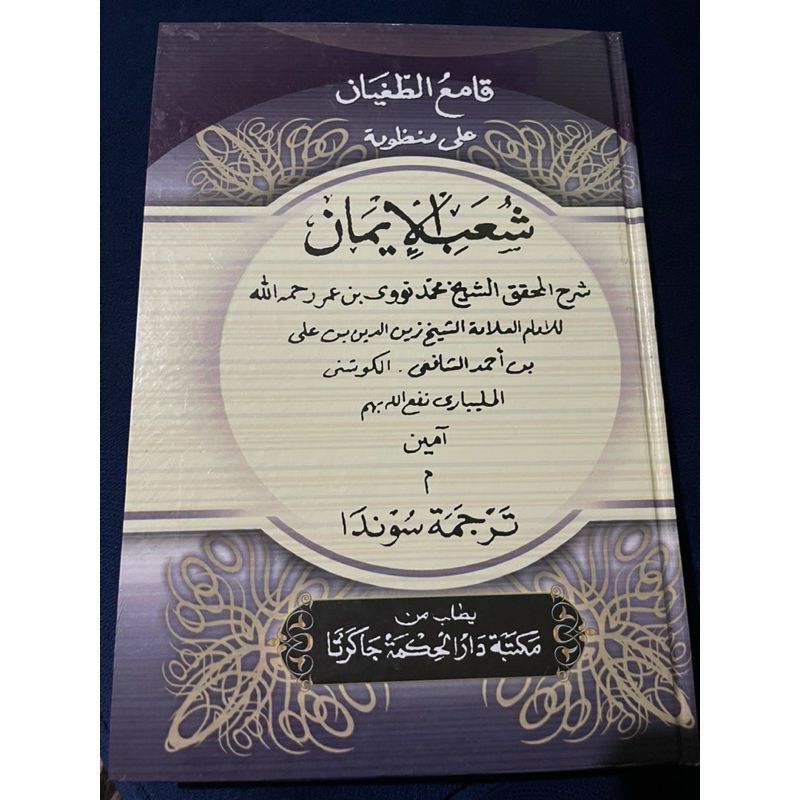 قامع الطّغيان
على منظومة
شُعَبِ الْإِيمَان
شرح المحقق الشيخ محمّد نووى بن عمر رحمه الله
للامام العلامة الشيخ زين الدين بن على
بن أحمد الشافعى . الكوشنى
المليبارى نفع الله بهم
آمين
م
تَرْجَمَة سُوْنْدَا
يطلب من
مَكْتَبَة دَارُ الْحِكْمَة جَاكَرْتَا